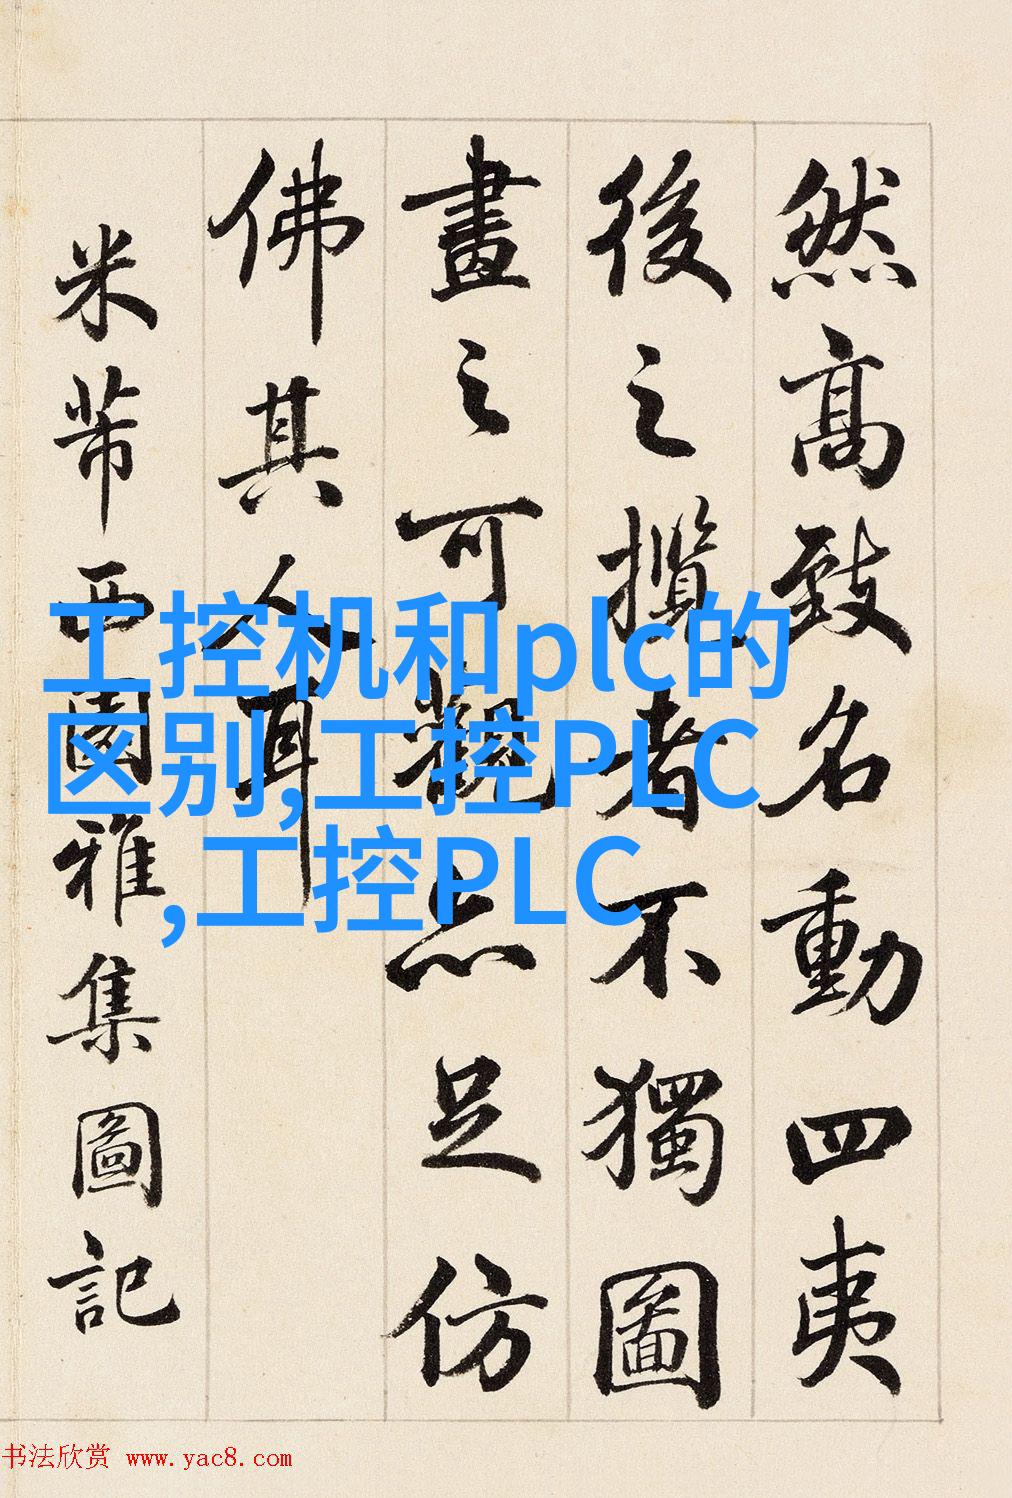 然高致名動四夷
後之攬者不獨圖
畫之可觀亦足仿
佛其人耳
米芾西園雅集圖記
工控机和plc的
区别,工控PLC
,工控PLC
书法欣赏 www.yac8.com